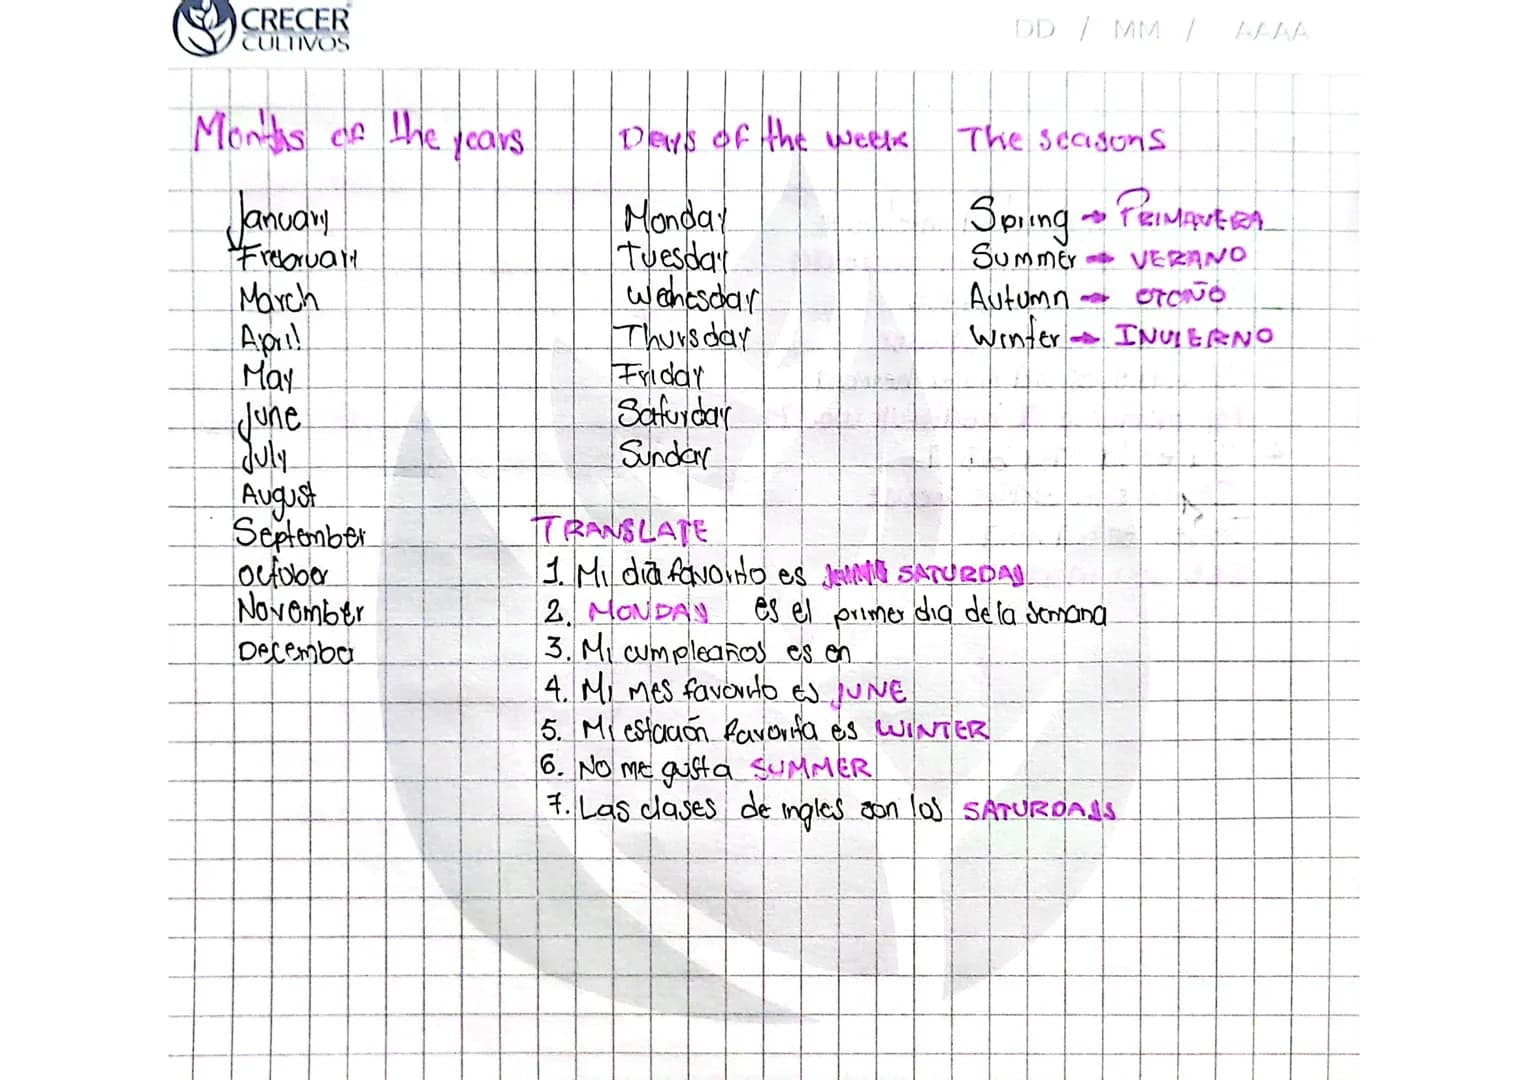 CRECER
CULTIVOS
DD / MM / AAAA
Months of the years
January
Frebruary
March
April
May
June
July
August
September
october
November
December
Days of the week
Monday
Tuesday
Wednesday
Thursday
Friday
Saturday
Sunday
The seasons
Spring → PRIMAVERA
Summer → VERANO
Autumn → OTOÑO
Winter → INVIERNO
TRANSLATE
1. Mi día favorito es SATURDAY
2. MONDAY es el primer dia de la semana
3. Mi cumpleaños es en
4. Mi mes favorito es JUNE
5. Mi estación favorita es WINTER
6. No me gusta SUMMER
7. Las clases de ingles son los SATURDAYS